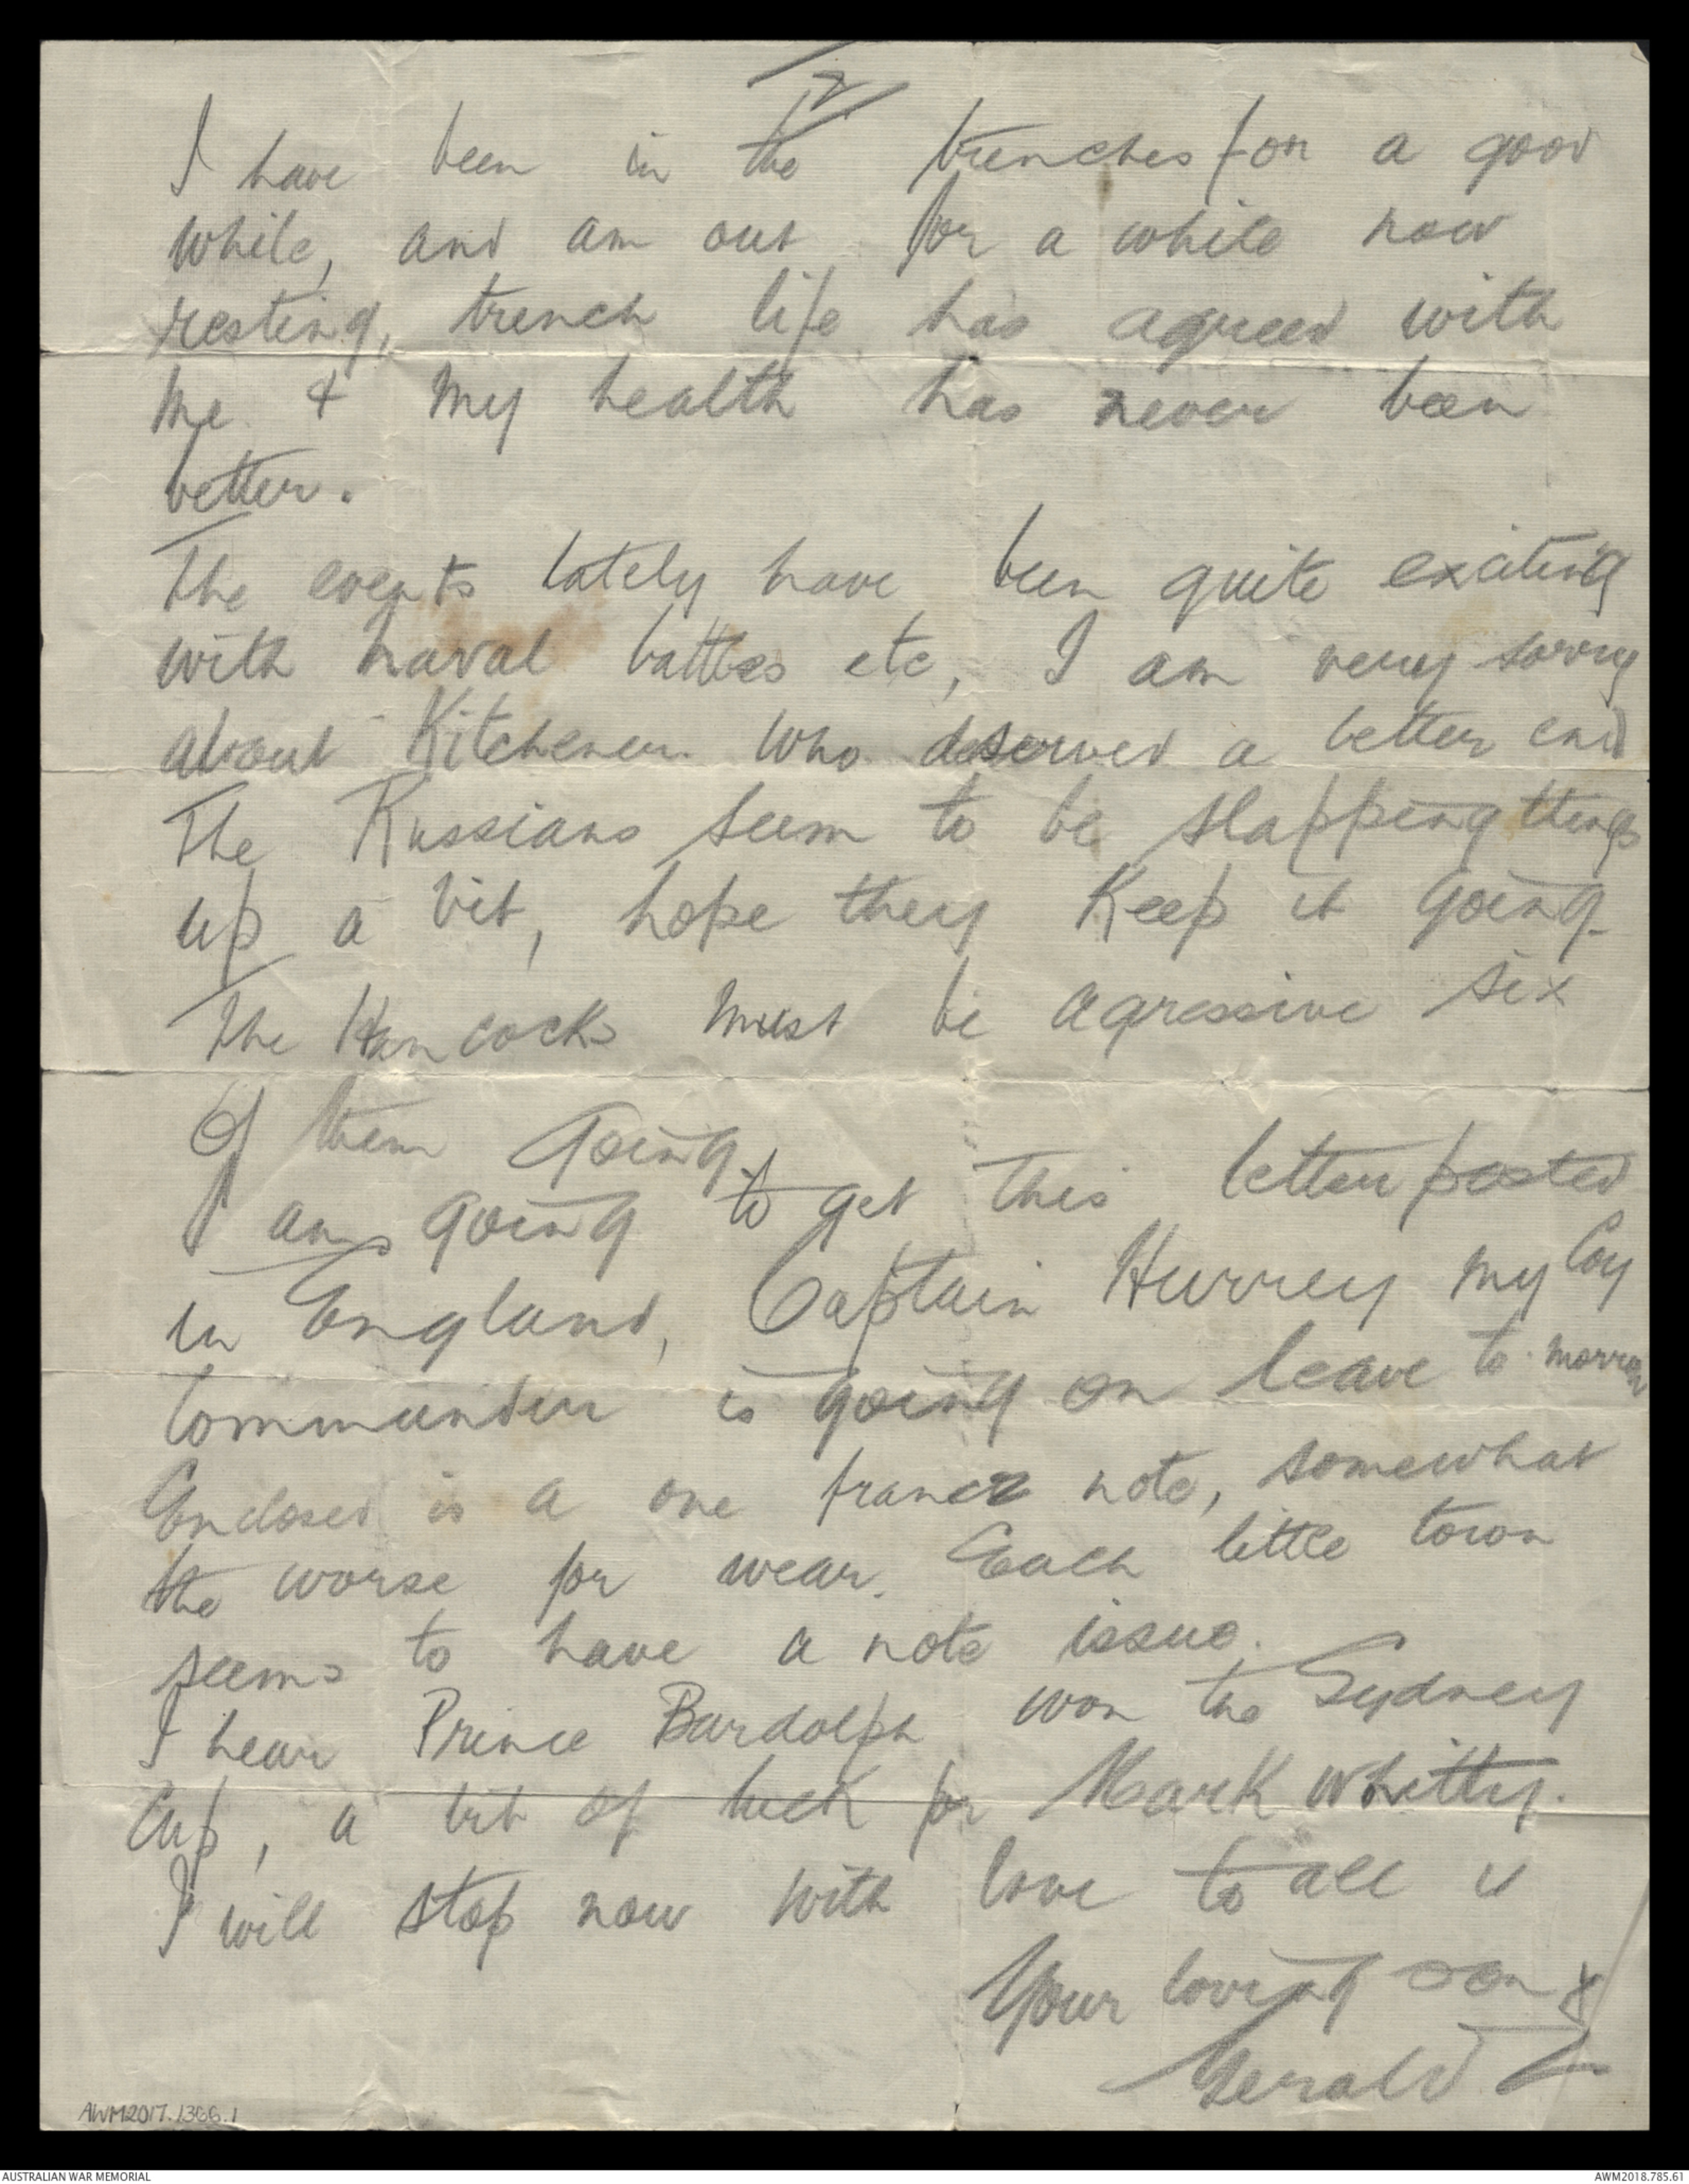 2
I have been in the trenches for a good
while, and am out for a while now
resting, trench life has agreed with
me & my health has never been
better.
The events lately have been quite exciting
with naval battles etc, I am very sorry
about Kitchener who deserved a better end
The Russians seem to be slapping things
up a bit, hope they keep it going
The Hancocks must be agressive six
of them going.
I am going to get this letter posted
in England, Captain Hurrey my Coy
Commander is going on leave to-morrow
Enclosed is a one franc note, somewhat
the worse for wear. Each little town
seems to have a note issue.
I hear Prince Bardolph won the Sydney
Cup, a bit of luck for Mark Whitty.
I will stop now with love to all
Your loving son
Gerald
AWM2017.1366.1
AUSTRALIAN WAR MEMORIAL
AWM2018.785.61